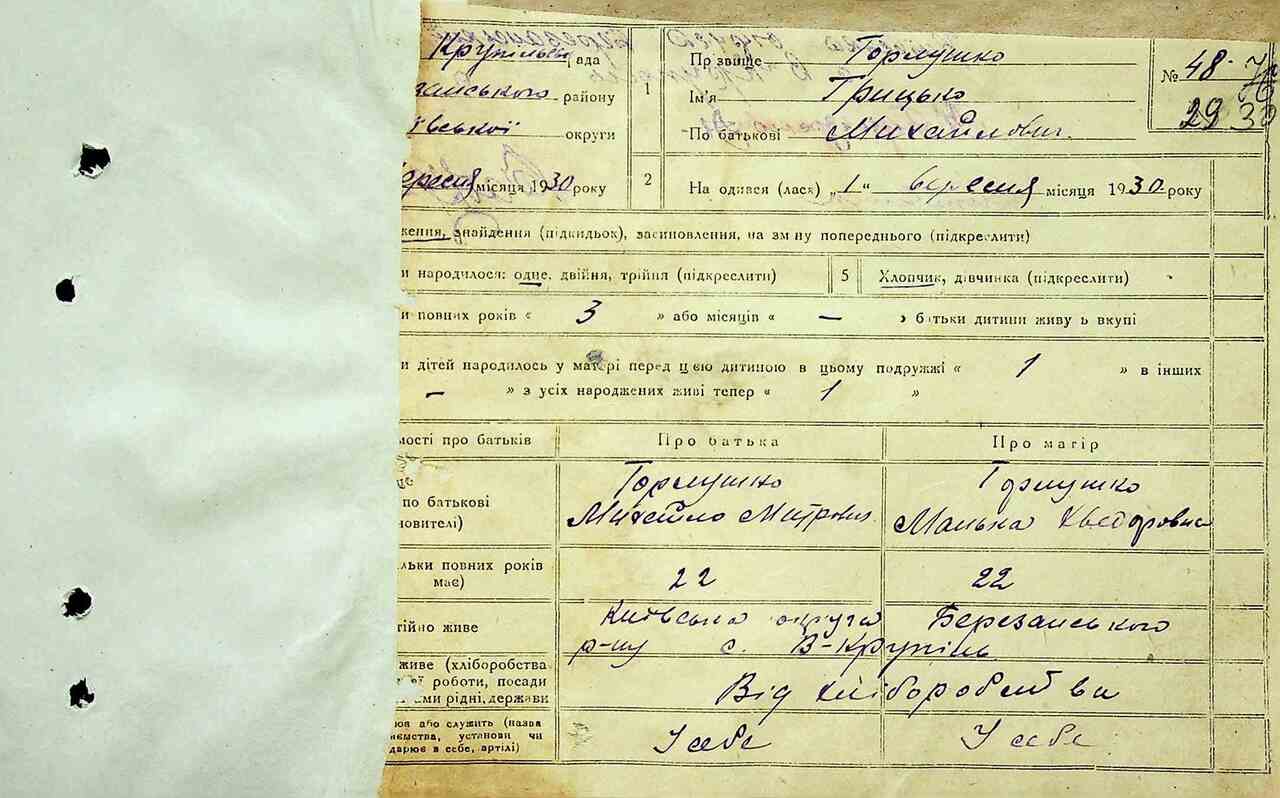 Крупільськ рада
Прзвище Гормушко
№ 48
ганського району
1
Ім'я Грицько
29 30
ївської округи
По батькові Михайлович.
ересня місяця 1930 року
2
На одився (лася) „1“ вересня місяця 1930 року
ження, знайдення (підкидьок), засиновлення, на зм ну попереднього (підкреслити)
и народилося: одне, двійня, трійня (підкреслити)
5
Хлопчик, дівчинка (підкреслити)
и повних років « 3 » або місяців « — » батьки дитини живу ь вкупі
и дітей народилось у матері перед цією дитиною в цьому подружжі « 1 » в інших
— » з усіх народжених живі тепер « 1 »
мості про батьків
Про батька
Про матір
по батькові
новителі)
Гормушко
Михайло Митрович
Гормушко
Манька Хведоровна
льки повних років
має)
22
22
тійно живе
Київська округа Березанського
р-ну с. В-Крупіль
живе (хліборобства
ої роботи, посади
ами рідні, держави
Від хліборобства
ює або служить (назва
иємства, установи чи
дарює в себе, артілі)
У себе
У себе